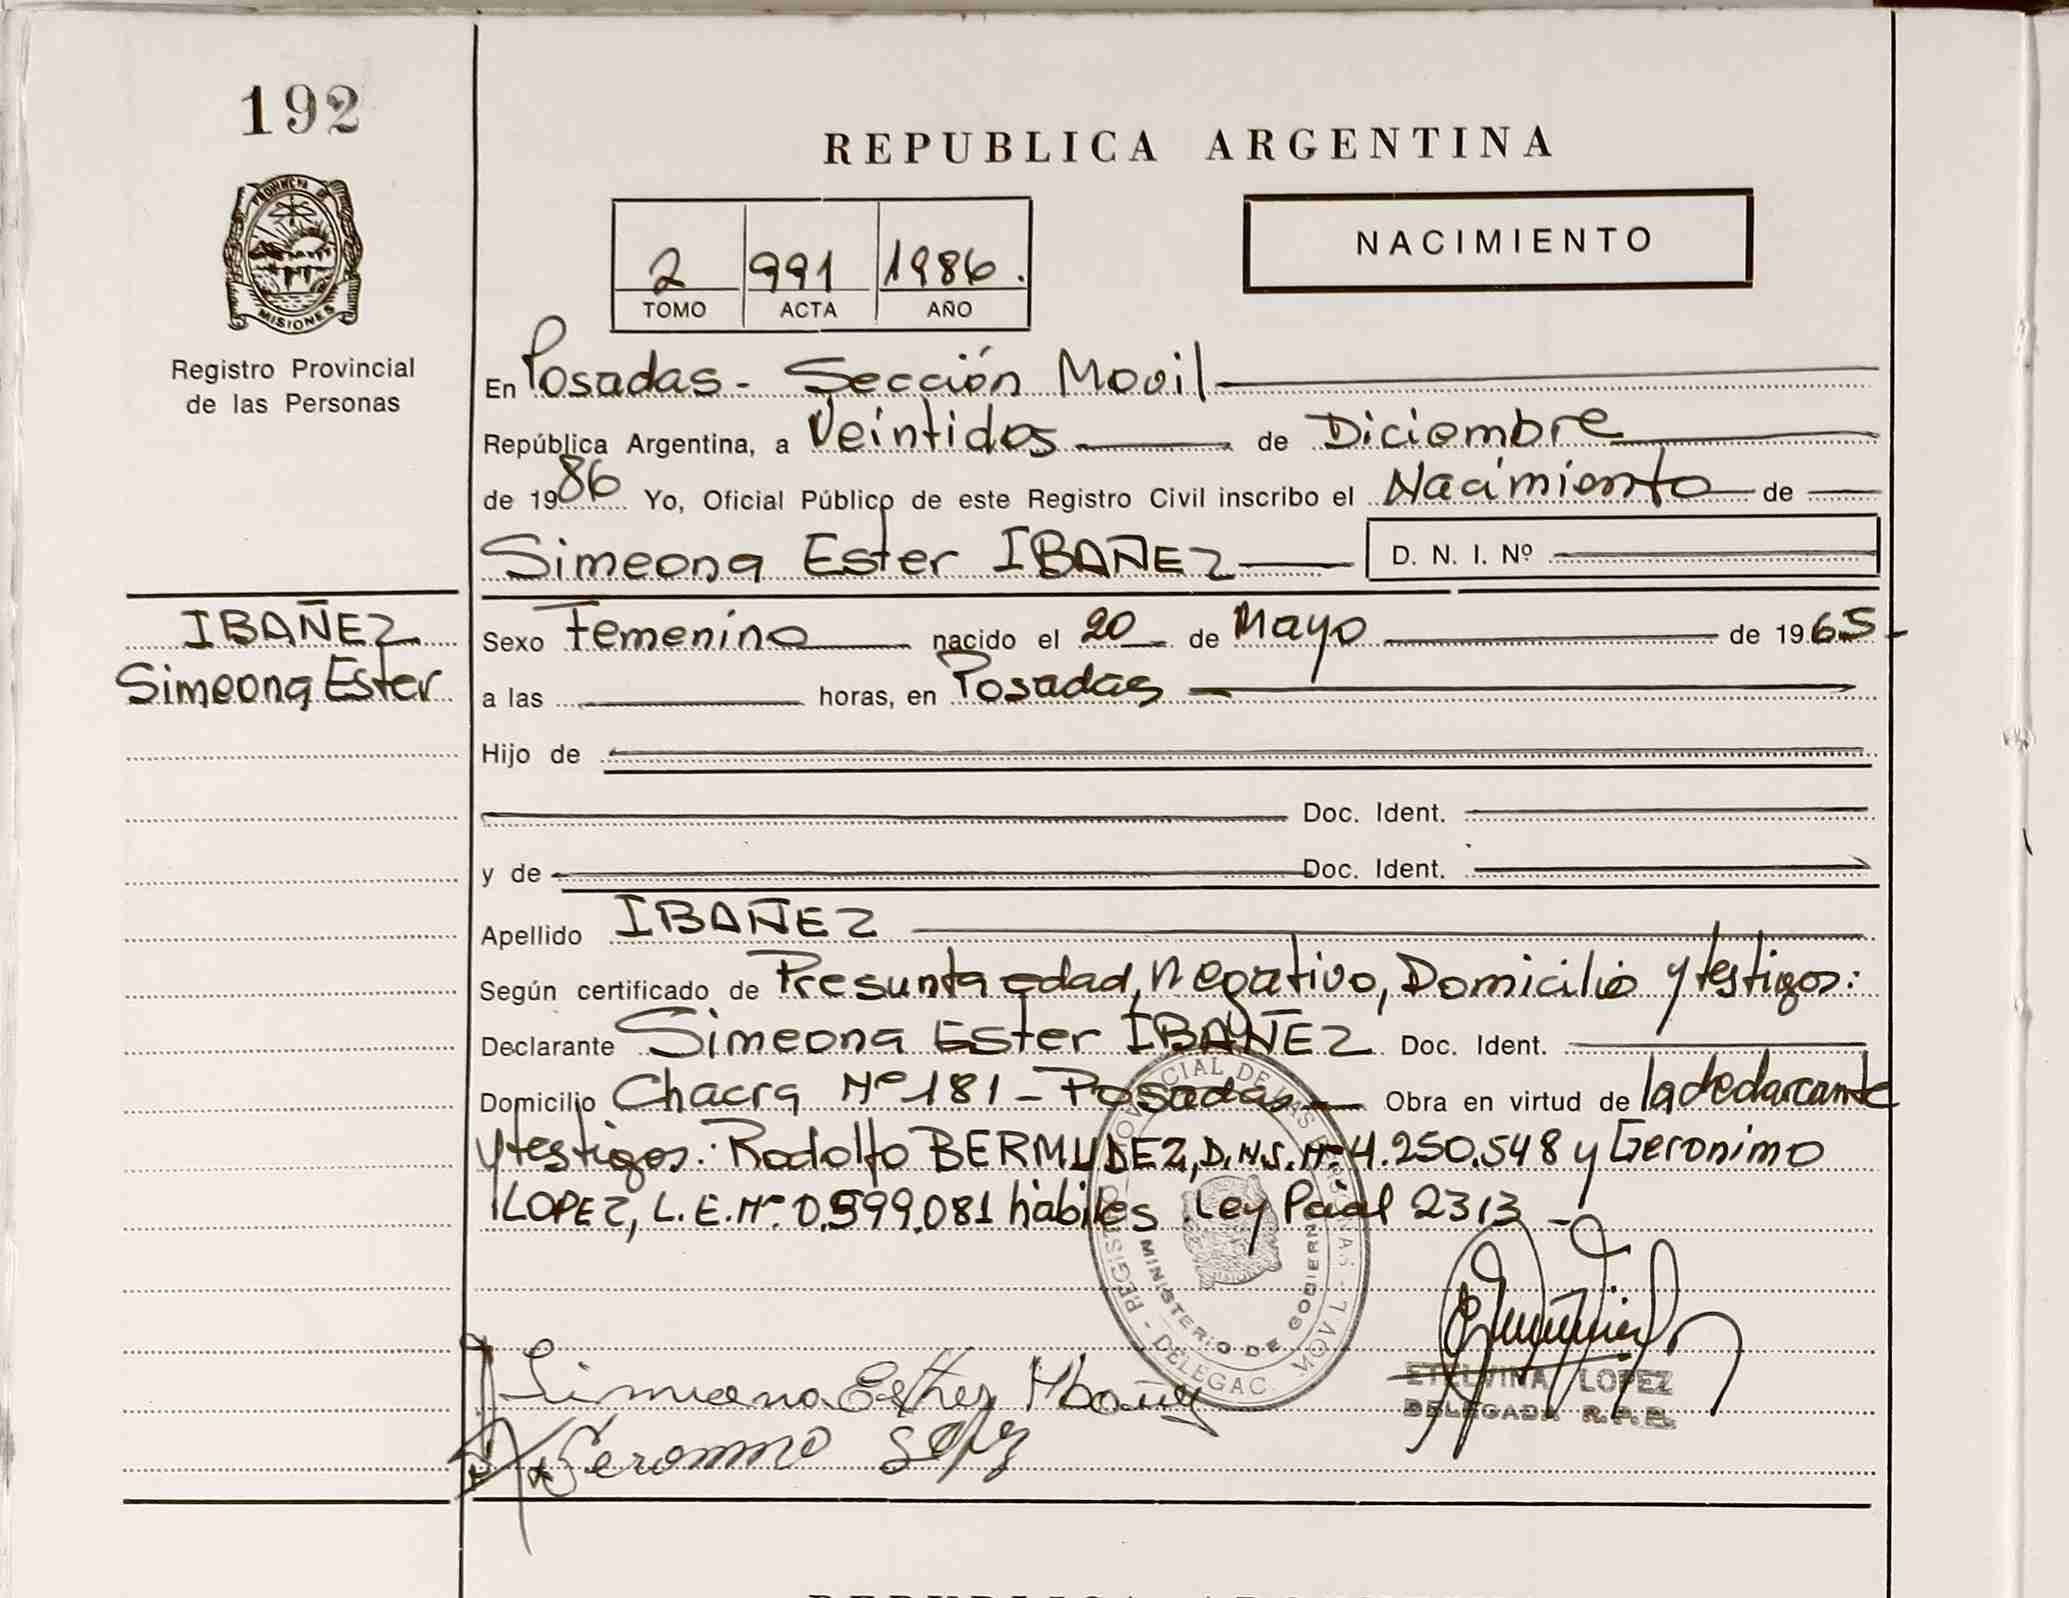 192
PROVINCIA DE
MISIONES
Registro Provincial
de las Personas
REPUBLICA ARGENTINA
2 991 1986.
TOMO ACTA AÑO
NACIMIENTO
En Posadas - Sección Movil
República Argentina, a Veintidos de Diciembre
de 1986 Yo, Oficial Público de este Registro Civil inscribo el Nacimiento de
Simeona Ester IBAÑEZ D. N. I. Nº
IBAÑEZ
Simeona Ester
Sexo Femenino nacido el 20 de Mayo de 1965
a las horas, en Posadas
Hijo de
Doc. Ident.
y de Doc. Ident.
Apellido IBAÑEZ
Según certificado de Presunta edad, negativo, Domicilio y testigos:
Declarante Simeona Ester IBAÑEZ Doc. Ident.
Domicilio Chacra Nº 181 - Posadas Obra en virtud de la declarante
y testigos: Rodolfo BERMUDEZ, D.N.I. Nº 4.250.548 y Geronimo
LOPEZ, L.E. Nº 0.599.081 hábiles Ley Pcial 2313
REGISTRO PROVINCIAL DE LAS PERSONAS - DELEGAC. MOVIL
MINISTERIO DE GOBIERNO
Geronimo
ETELVINA LOPEZ
DELEGADA R.P.P.
REPUBLICA ARGENTINA